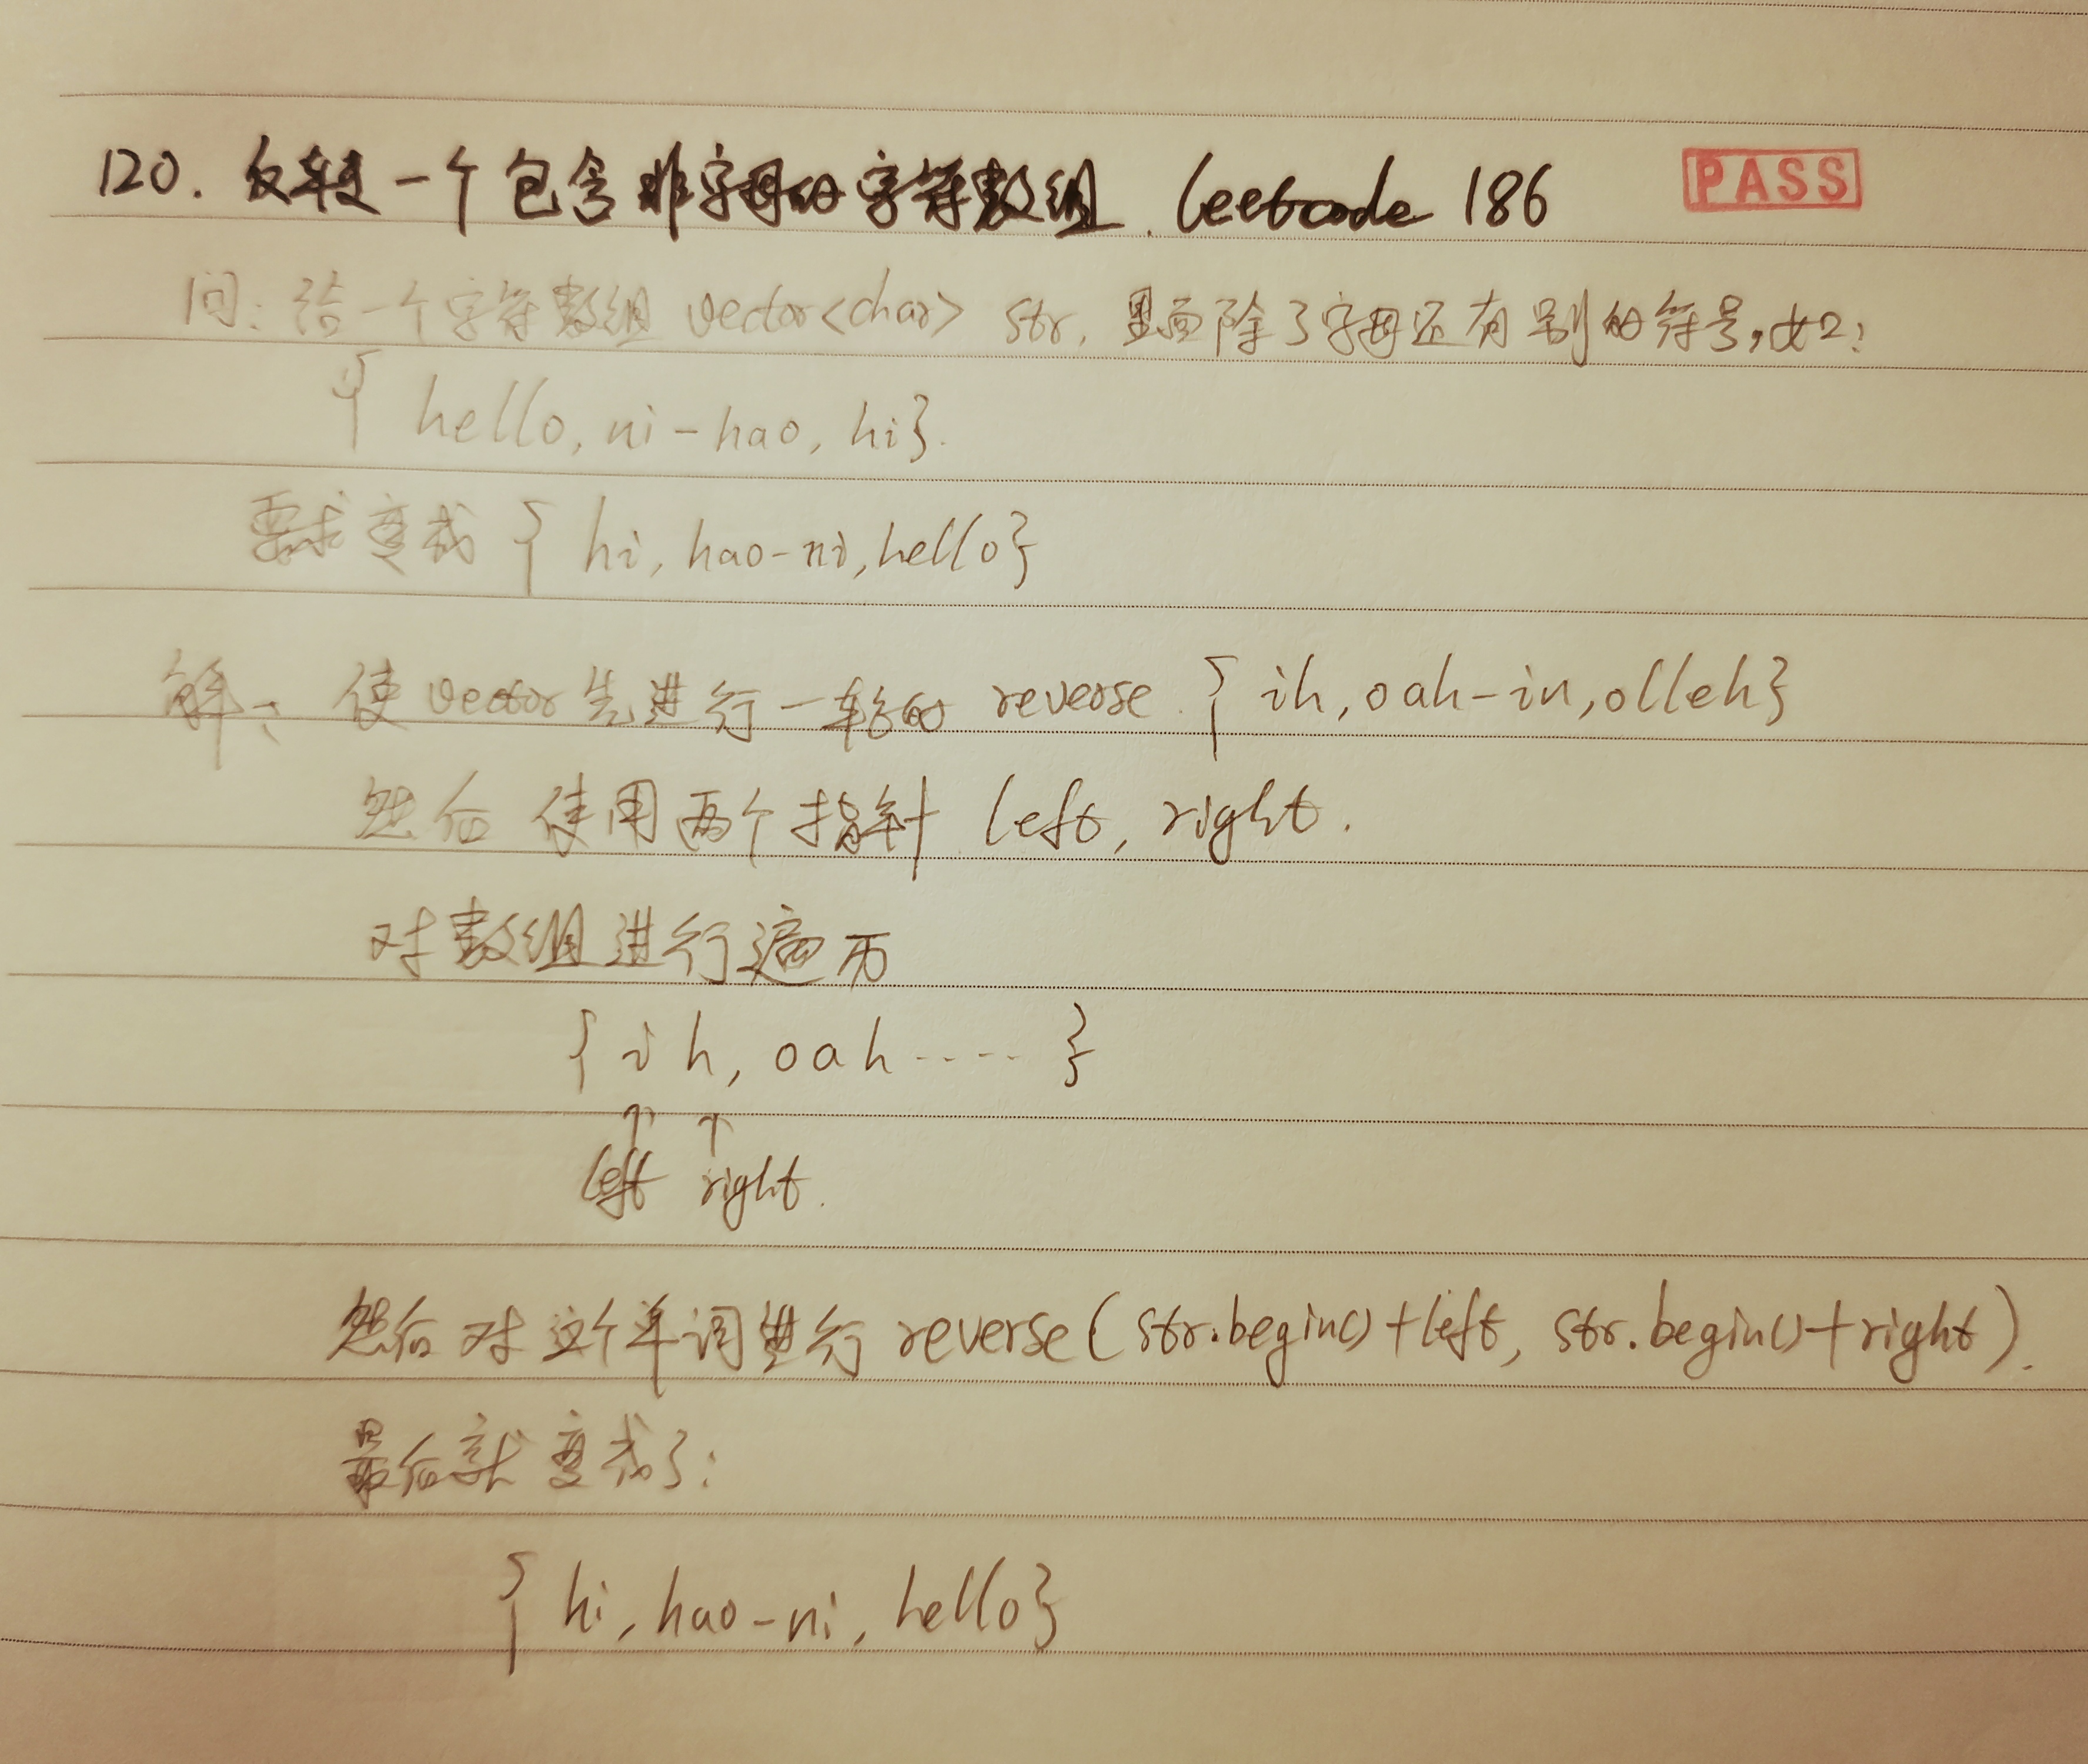 120. 反转一个包含非字母的字符数组. leetcode 186 PASS
问: 给一个字符数组 vector<char> str, 里面除了字母还有别的符号,如:
{ hello, ni-hao, hi}.
要求变成 { hi, hao-ni, hello}
解: 使vector先进行一轮的 reverse. { ih, oah-in, olleh}
然后 使用两个指针 left, right.
对数组进行遍历
{ih, oah....}
left right.
然后对这个单词进行 reverse(str.begin()+left, str.begin()+right).
最后就变成了:
{ hi, hao-ni, hello}